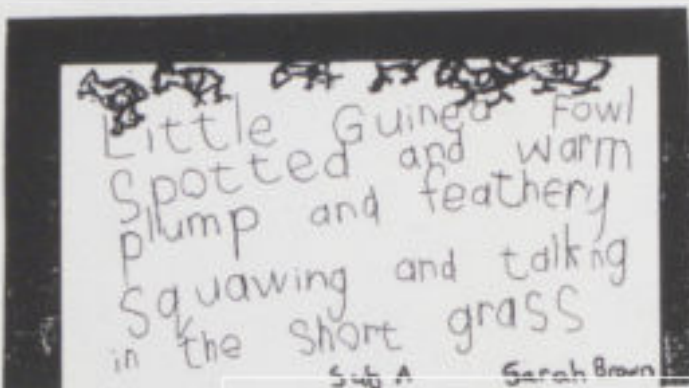 Little Guinea Fowl
Spotted and warm
plump and feathery
Squawing and talking
in the short grass
Sub A Sarah Brown